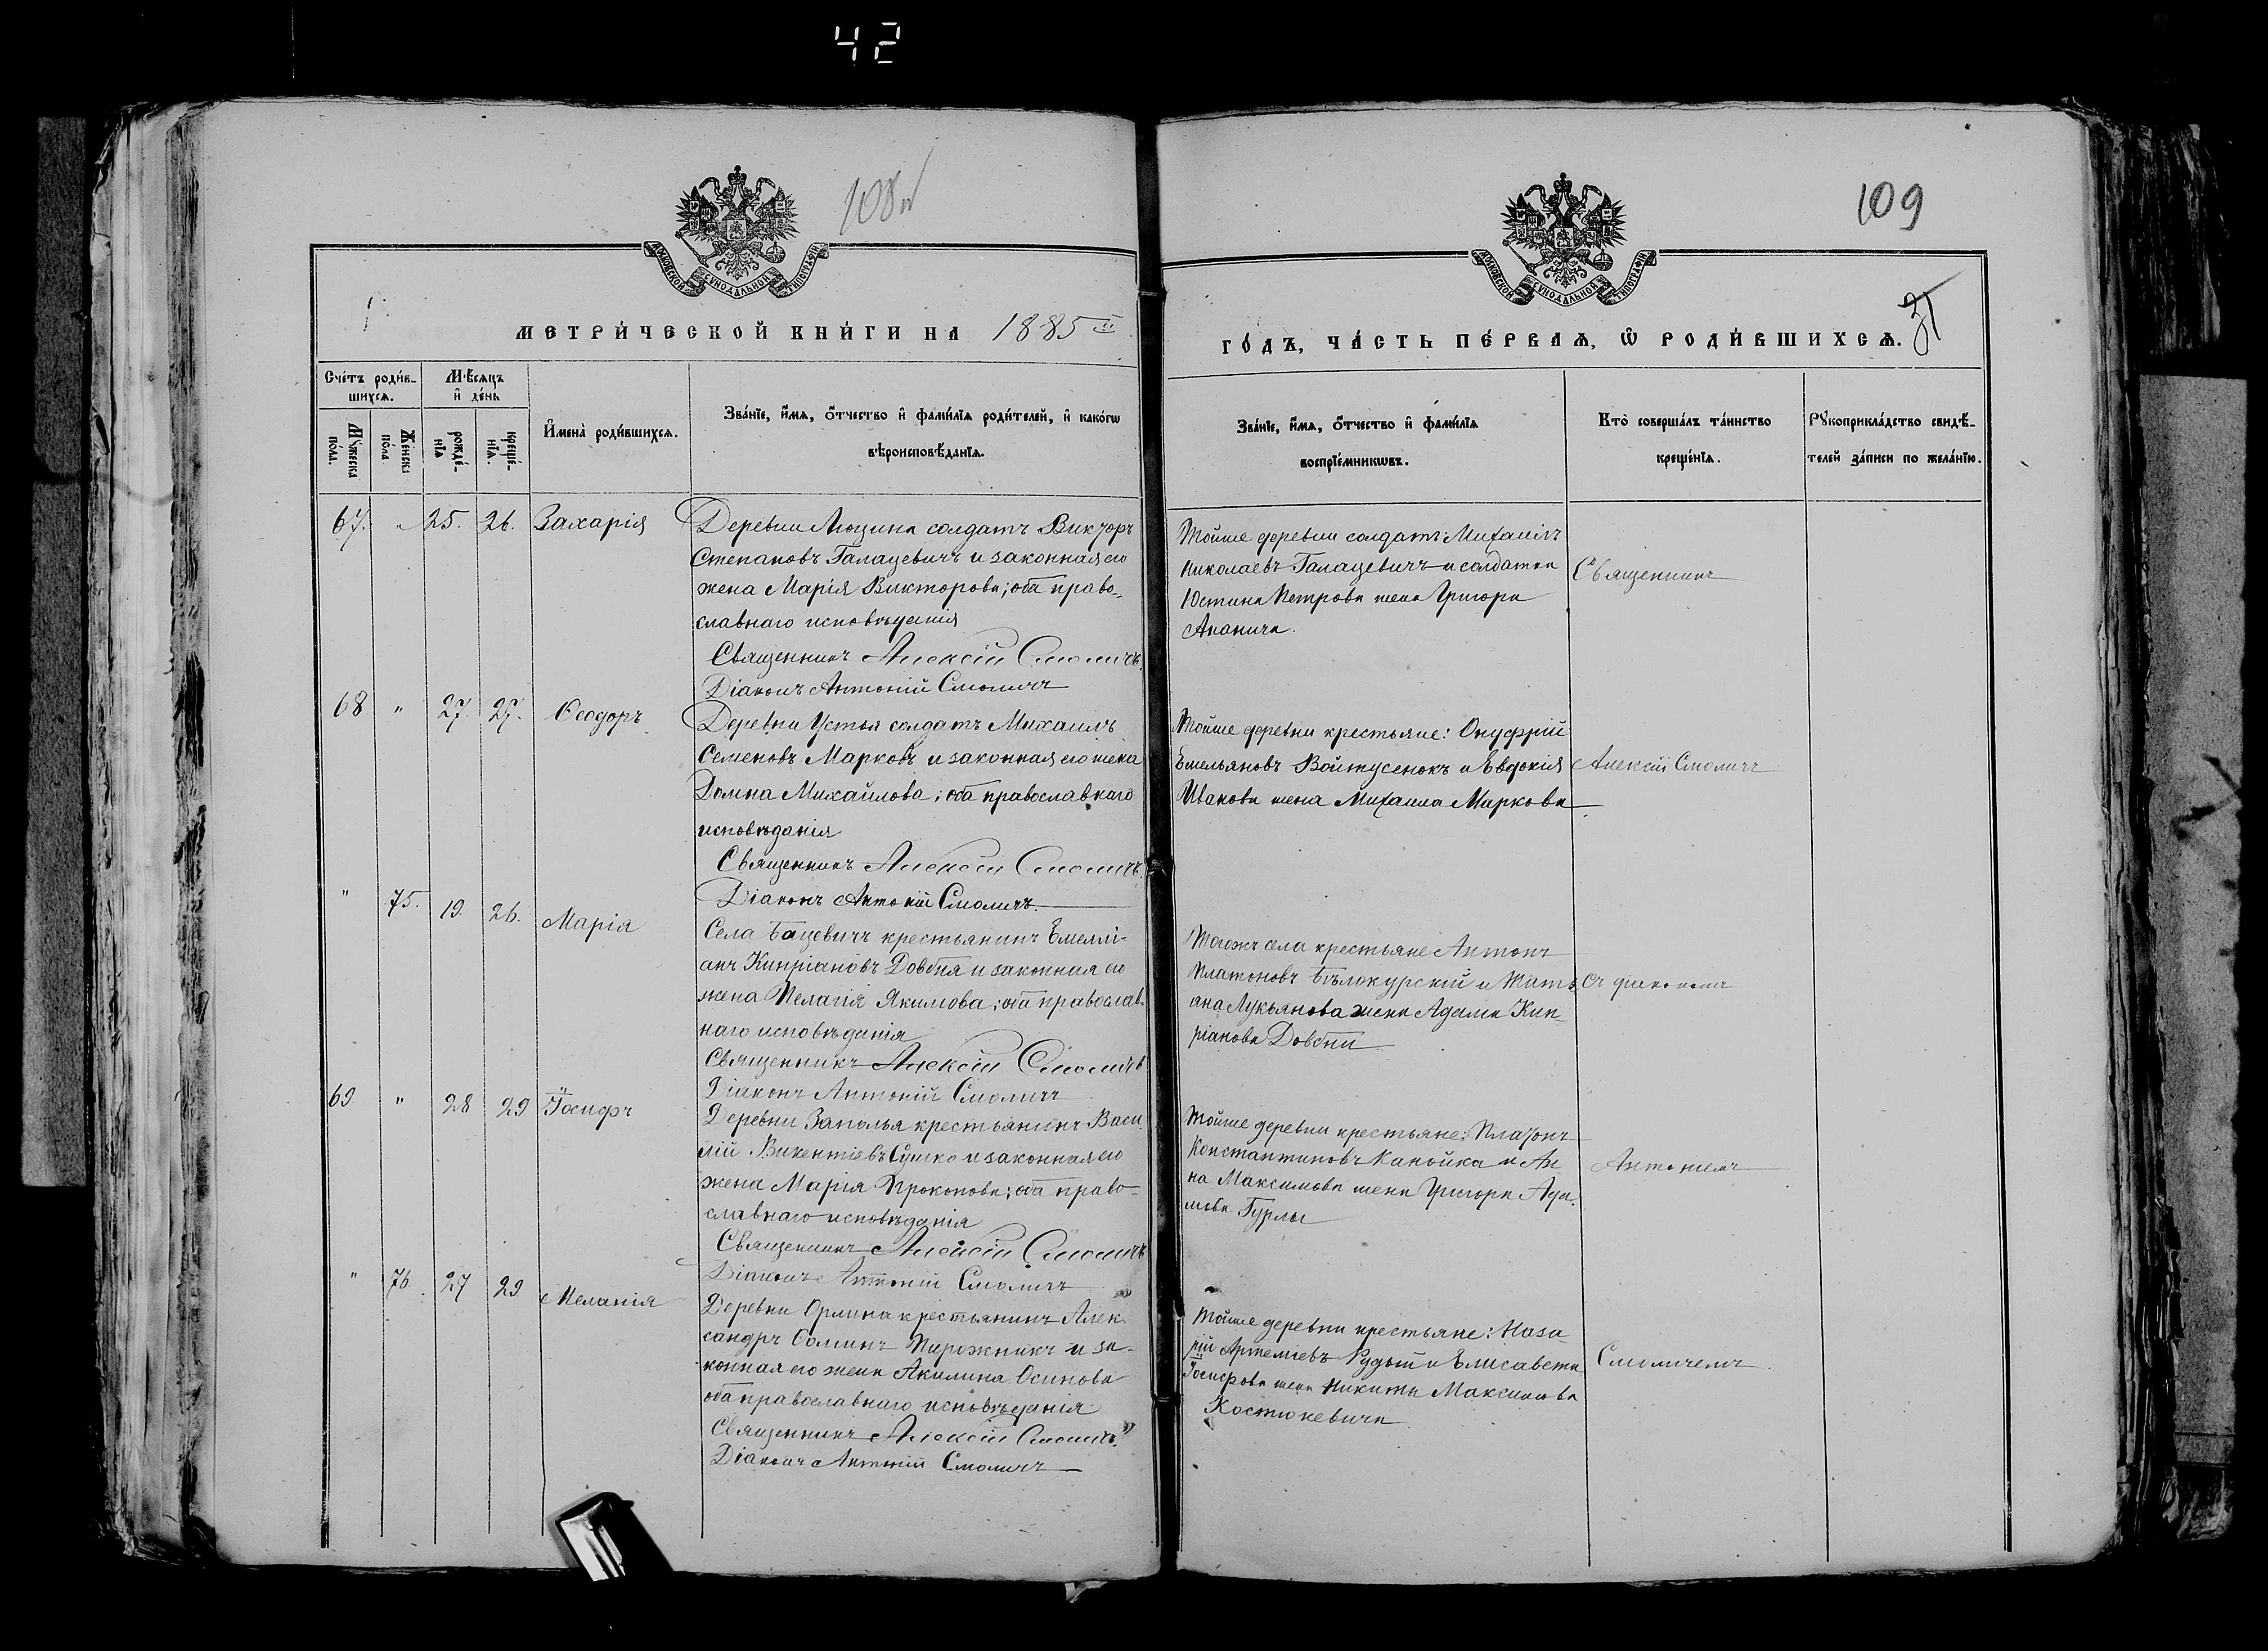 42
108
109
31
МОСКОВСКОЙ СѴНОДАЛЬНОЙ ТИПОГРАФІИ
МОСКОВСКОЙ СѴНОДАЛЬНОЙ ТИПОГРАФІИ
МЕТРИ́ЧЕСКОЙ КНИ́ГИ НА 1885 й
ГО́ДЪ, ЧА́СТЬ ПЕ́РВАѦ, Ѡ҆ РОДИ́ВШИХСѦ.
Сче́тъ роди́в-
шихсѧ.
Мѣ́сяцъ
и҆ де́нь
Мꙋ́жеска
по́ла.
Же́нска
по́ла.
рожде́-
нїѧ
креще́-
нїѧ.
И҆мена̀ роди́вшихсѧ.
Зва́нїе, и҆́мѧ, ѻ҆́тчество и҆ фами́лїѧ роди́телей, и҆ како́гѡ
вѣроисповѣ́данїѧ.
Зва́нїе, и҆́мѧ, ѻ҆́тчество и҆ фами́лїѧ
воспрїе́мникѡвъ.
Кто̀ соверша́лъ та́инство
креще́нїѧ.
Рꙋкоприкла́дство свидѣ́-
телей за́писи по жела́нїю.
67. " 25. 26. Захарія
Деревни Люзина солдатъ Викторъ
Степановъ Галацевичъ и законная его
жена Марія Викторова; оба право-
славнаго исповѣданія
Священникъ Алексій Смоличъ.
Діаконъ Антоній Смоличъ
Тойже деревни солдатъ Михаилъ
Николаевъ Галацевичъ и солдатка
Юстина Петрова жена Григорія
Ананича.
Священникъ
68 " 27. 27. Ѳеодоръ
Деревни Устья солдатъ Михаилъ
Семеновъ Марковъ и законная его жена
Домна Михайлова; оба православнаго
исповѣданія
Священникъ Алексій Смоличъ.
Діаконъ Антоній Смоличъ.
Тойже деревни крестьяне: Онуфрій
Емельяновъ Войтусенокъ и Евдокія
Иванова жена Михаила Маркова
Алексій Смоличъ
" 75. 19. 26. Марія
Села Бацевичъ крестьянинъ Емелі-
анъ Кипріановъ Довбня и законная его
жена Пелагія Якимова; оба православ-
наго исповѣданія
Священникъ Алексій Смоличъ
Діаконъ Антоній Смоличъ
Тогожъ села крестьяне Антонъ
Платоновъ Бѣлокурскій и Тать-
ана Лукьянова жена Адама Кип-
ріанова Довбни
Съ діакономъ
69. " 28 29 Іосифъ
Деревни Заполья крестьянинъ Васи-
лій Викентіевъ Сушко и законная его
жена Марія Прокопова; оба право-
славнаго исповѣданія
Священникъ Алексій Смоличъ
Діаконъ Антоній Смоличъ
Тойже деревни крестьяне: Платонъ
Константиновъ Канойка и Ан-
на Максимова жена Григорія Ада-
мова Гурлы
Антоніемъ
" 76. 27 29 Меланія
Деревни Орлина крестьянинъ Алек-
сандръ Ѳоминъ Пирожникъ и за-
конная его жена Акилина Осипова
оба православнаго исповѣданія
Священникъ Алексій Смоличъ
Діаконъ Антоній Смоличъ
Тойже деревни крестьяне: Наза-
рій Артеміевъ Рудый и Елисавета
Іосифова жена Никиты Максимова
Костюкевича
Смоличемъ.